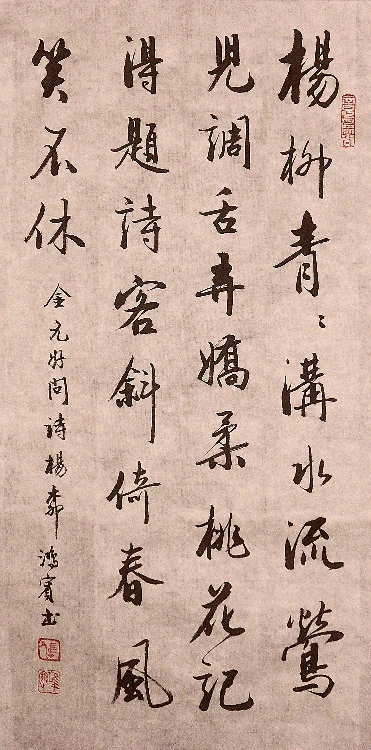 楊柳青〻溝水流鶯
児調舌弄嬌柔桃花記
得題詩客斜倚春風
笑不休
金元好問詩楊柳鴻賓书